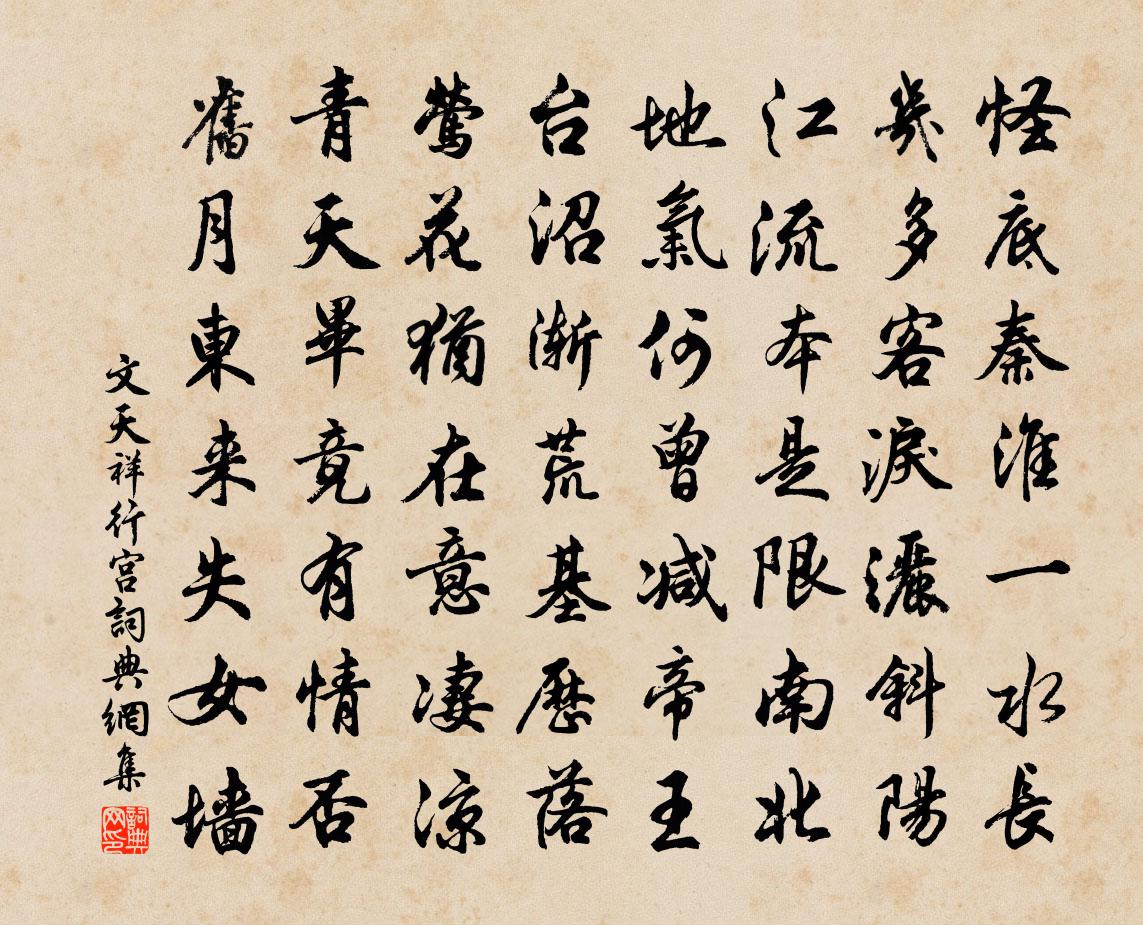 怪底秦淮一水長
幾多客淚灑斜陽
江流本是限南北
地氣何曾減帝王
台沼漸荒基歷落
鶯花猶在意凄涼
青天畢竟有情否
舊月東来失女墻
文天祥行宮詞典網集
詞典網印